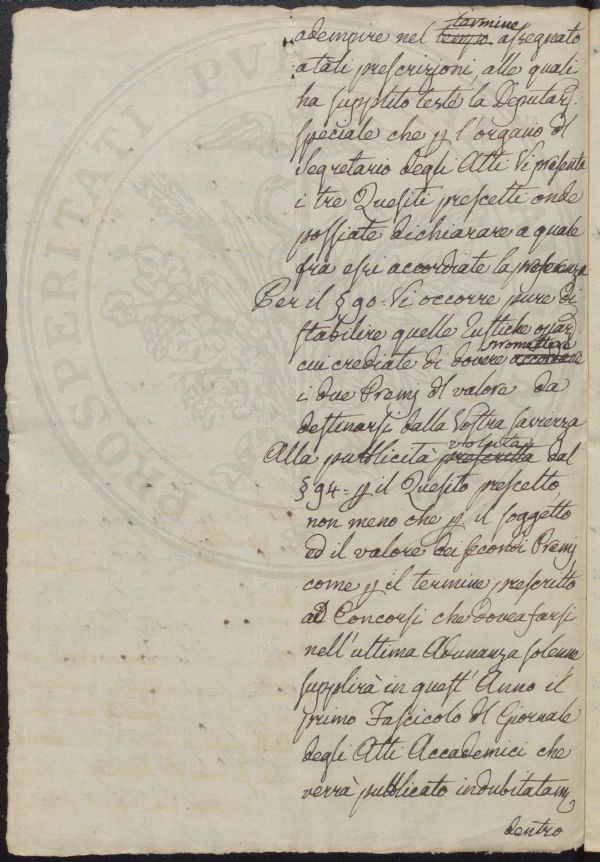 termine
adempire nel tempo assegnato
a tali prescrizioni, alle quali
ha supplito testè la Deputaz.
speciale che p l'organo del
Segretario degli Atti Vi presenta
i tre Quesiti prescelti onde
possiate dichiarare a quale
fra essi accordiate la preferenza
Per il § 90 = Vi occorre pure di
stabilire quelle rustiche operaz.
promettere
cui crediate di dovere accordare
i due Premj del valore da
destinarsi dalla Vostra saviezza
voluta
Alla pubblicità prescritta dal
§ 94 = p il Quesito prescelto
non meno che p il soggetto
ed il valore dei secondi Premj
come p il termine prescritto
ai Concorsi che dovea farsi
nell'ultima Adunanza solenne
supplirà in quest'Anno il
primo Fascicolo del Giornale
degli Atti Accademici che
verrà pubblicato indubitatam.
dentro
PROSPERITATI